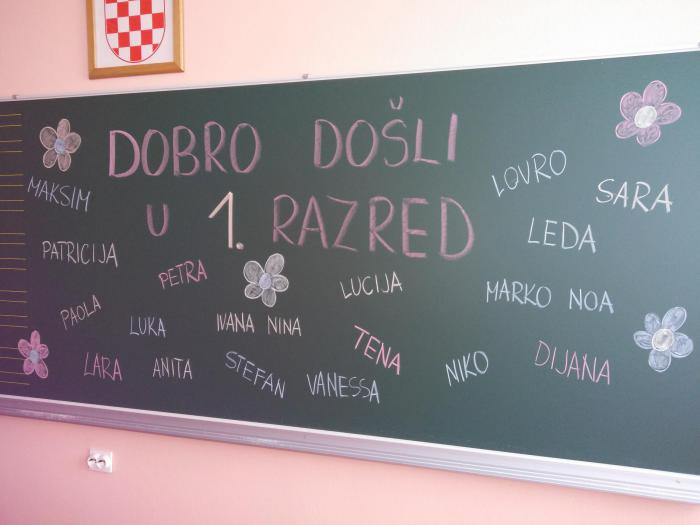 DOBRO DOŠLI
U 1. RAZRED
LOVRO
SARA
MAKSIM
LEDA
PATRICIJA
PETRA
LUCIJA
MARKO NOA
PAOLA
LUKA
IVANA NINA
TENA
NIKO
DIJANA
LARA
ANITA
STEFAN
VANESSA